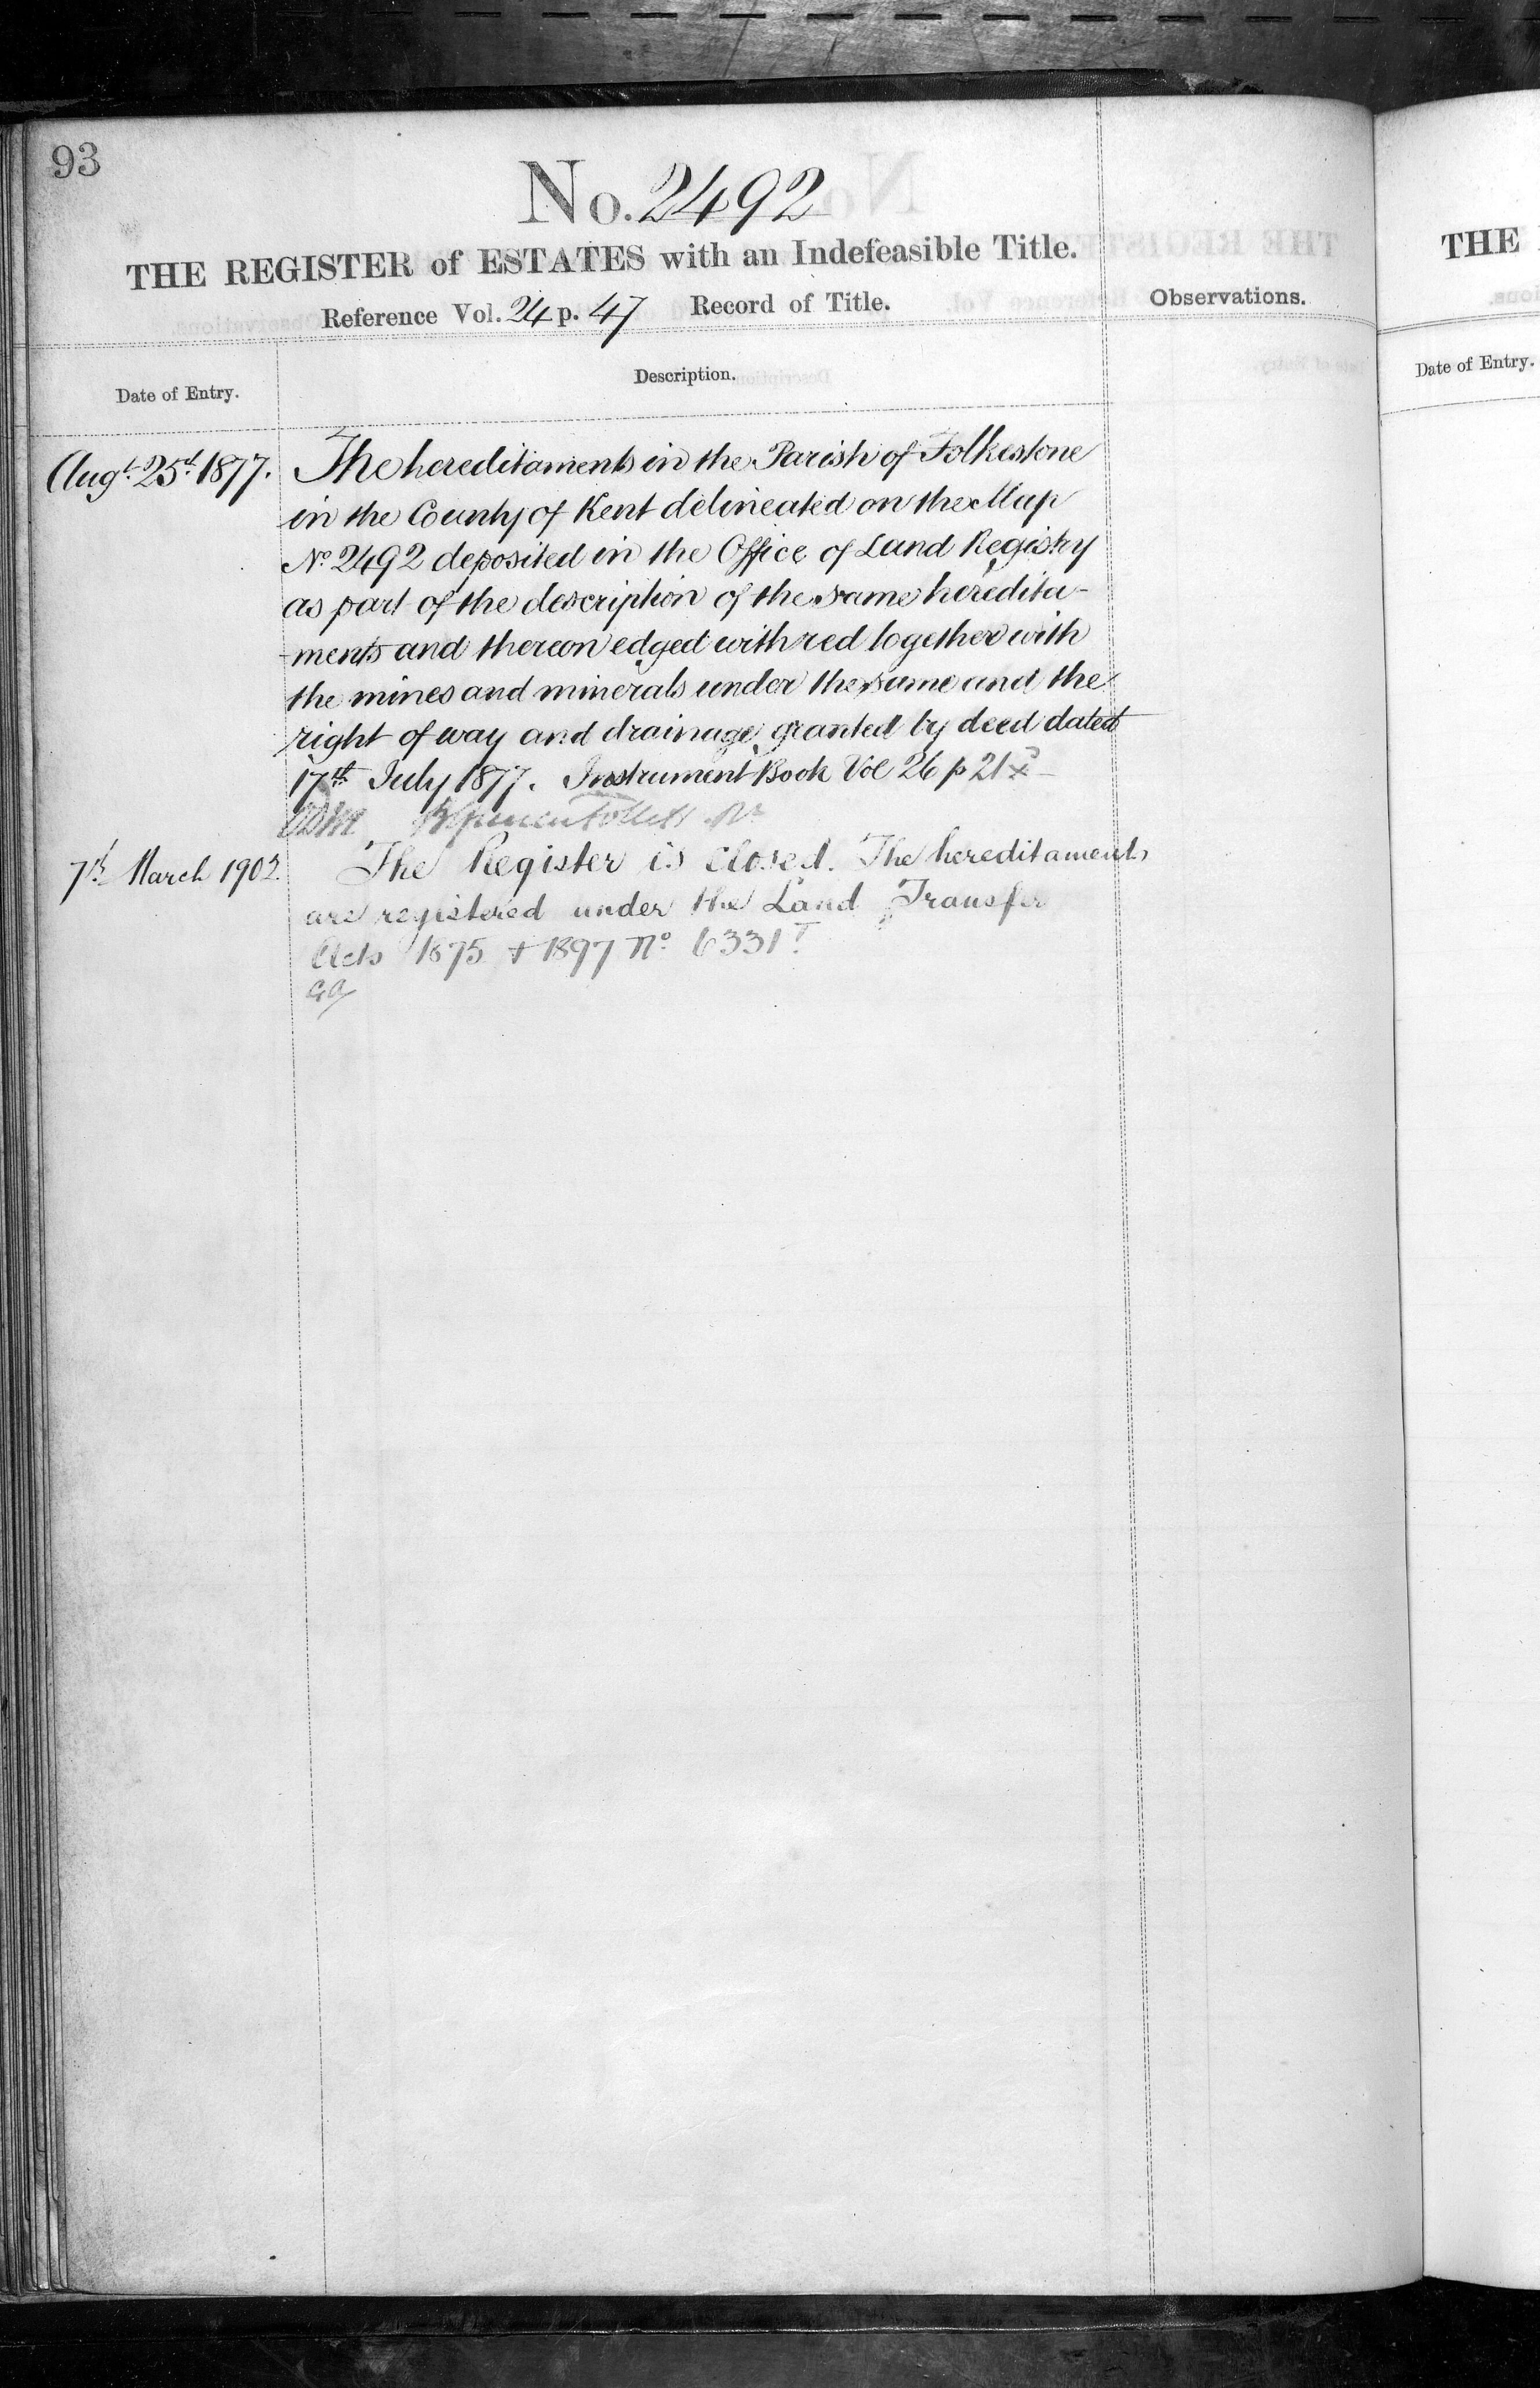 93
No. 2492
THE REGISTER of ESTATES with an Indefeasible Title.
Reference Vol. 24 p. 47 Record of Title.
Observations.
Date of Entry.
Description.
Augt. 25th 1877.
The hereditaments in the Parish of Folkestone
in the County of Kent delineated on the Map
No. 2492 deposited in the Office of Land Registry
as part of the description of the same heredita-
-ments and thereon edged with red together with
the mines and minerals under the same and the
right of way and drainage granted by deed dated
17th July 1877. Instrument Book Vol 26 p 21
Follett
7th March 1902.
The Register is closed. The hereditaments
are registered under the Land Transfer
Acts 1875 + 1897 No 6331
THE
Date of Entry.